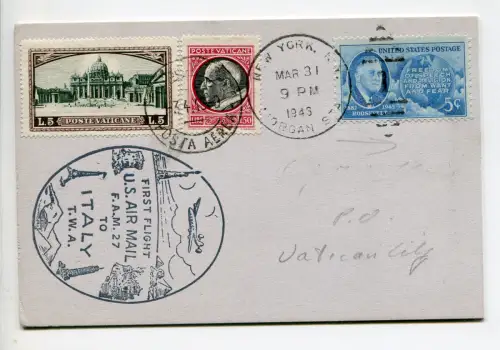 POSTE VATICANE
L.5 POSTE VATICANE L.5
POSTA AEREA
NEW YORK, N.Y.
MAR 31
9 PM
1946
MORGAN STA.
UNITED STATES POSTAGE
FREEDOM
OF SPEECH
AND RELIGION
FROM WANT
AND FEAR
1945
ROOSEVELT
5¢
FIRST FLIGHT
U.S. AIR MAIL
F.A.M. 27
TO
ITALY
T.W.A.
P.O.
Vatican City